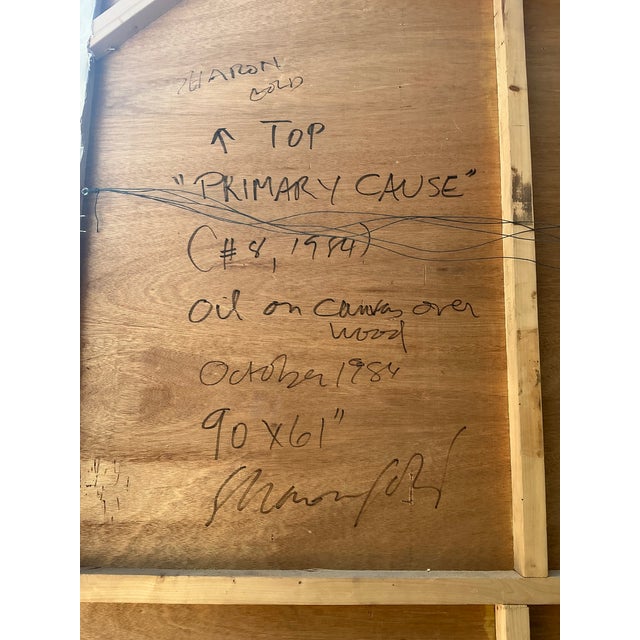 SHARON
GOLD
↑ TOP
"PRIMARY CAUSE"
(#8, 1984)
Oil on canvas over
wood
October 1984
90 x 61"
Sharon Gold